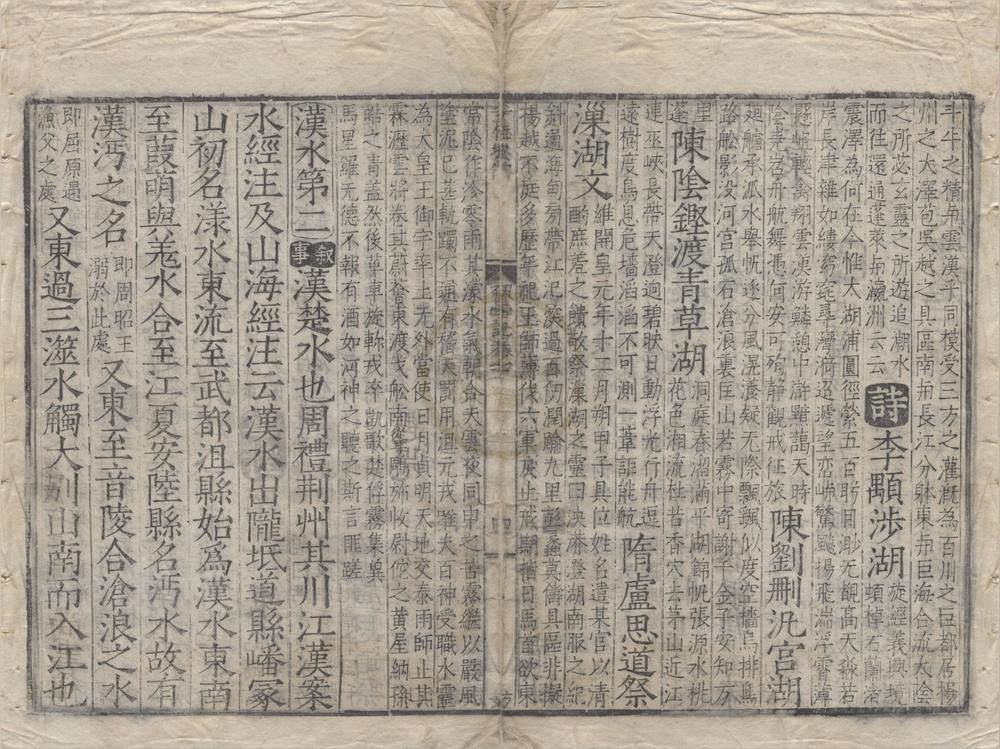 斗牛之精卅雲漢乎同模受三方之灌漑為百川之巨都居揚
州之大澤包吳越之具區南卅長江分躰東卅巨海合流太陰
之所苾玄靈之所遊追湖水
而往還通蓬萊卅瀛洲云云
詩李顒涉湖
旋經義興境
㟽棹石蘭渚
震澤為何在今惟太湖浦圓徑縈五百眄目渺无覩髙天淼若
岸長津雜如縷窈窕尋灣漪迢遞望巒嶼驚飈揚飛湍浮霄薄
懸岠輕禽翔雲漠游鱗憇中滸黯藹天時
陰岧岧舟航舞憑何安可殉靜觀戒征旅
陳劉刪汎宮湖
迴艫承泒水舉帆逐分風滉瀁疑无際飄颻似度空檣烏排鳥
路舩影没河宮孤石滄浪裏匡山若霧中寄謝千金子安知万
里
蓬
陳陰鏗渡青草湖
洞庭春溜滿平湖錦帆張源水桃
花色湘流杜若香穴去茅山近江
連巫峽長帶天澄迥碧映日動浮光行舟逗
遠樹度鳥息危檣滔滔不可測一葦詎能航
隋盧思道祭
漅湖文
維開皇元年十二月朔甲子具位姓名遣某官以清
酌庶羞之饋敬祭漅湖之靈曰泱漭澄湖南服之紀
斜通海甸旁帶江汜深過百仞濶踰九里彭蠡莫儔具區非擬
揚越不庭多歷年祀王師薄伐六軍戾止戒期指日馬首欲東
常陰作沴寒雨其濛水氣朝合天雲夜同申之苦霧繼以嚴風
塗泥已甚軌躅不通有稽天罰用沮元戎唯夫百神受職水靈
為大皇王御宇率土无外當使日月貞明天地交泰雨師止其
霖瀝雲將卷其蔚薈東渡戈舩南擊鷁旆收尉佗之黄屋納孫
晧之青蓋然後革車旋軫戎卒凱歌楚俘霧集吳
馬星羅无德不報有酒如河神之聽之斯言匪蹉
漢水第二
叙
事
漢楚水也周禮荆州其川江漢案
水經注及山海經注云漢水出隴坻道縣嶓冢
山初名漾水東流至武都沮縣始爲漢水東南
至葭萌與羗水合至江夏安陸縣名沔水故有
漢沔之名
即周昭王
溺於此處
又東至音陵合滄浪之水
即屈原遇
漁父之處
又東過三澨水觸大別山南而入江也